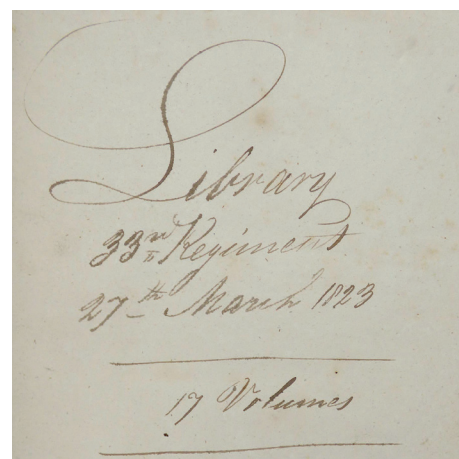 Library
33rd Regiment
27th March 1823
17 Volumes